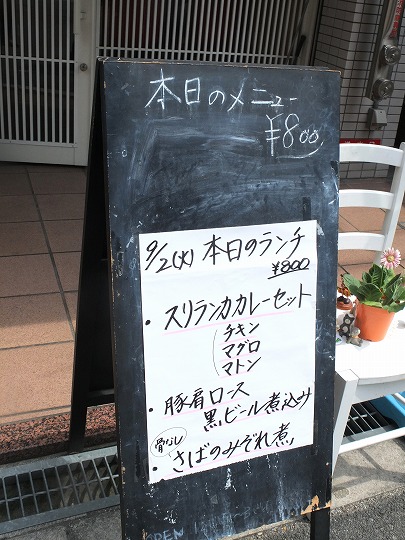 本日のメニュー
¥800
9/2(火) 本日のランチ
¥800
・スリランカカレーセット
チキン
マグロ
マトン
・豚肩ロース
黒ビール煮込み
骨なし
・さばのみぞれ煮
OPEN